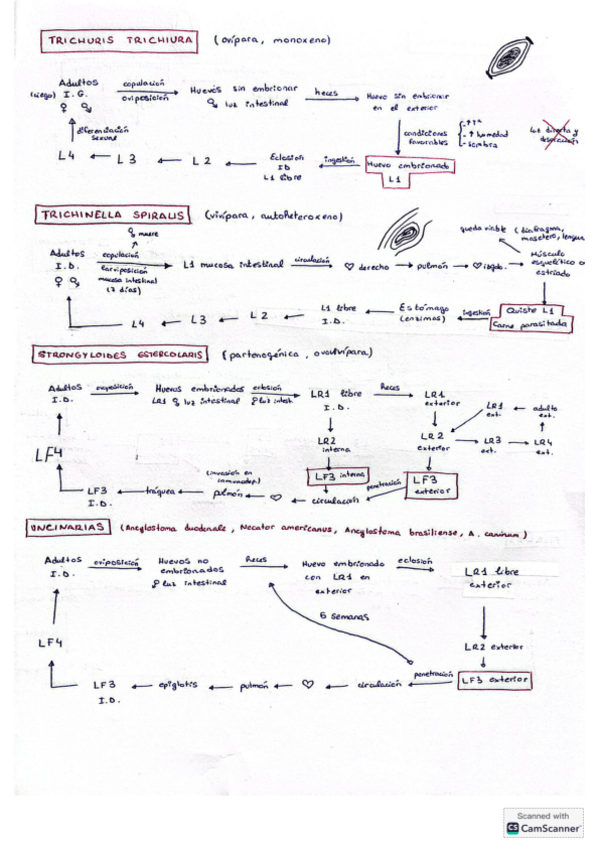 TRICHURIS TRICHIURA (ovípara, monoxeno)
Adultos I.G. (ciego) ♀ ♂
copulación
oviposición
Huevos sin embrionar
♀ luz intestinal
heces
Huevo sin embrionar
en el exterior
condiciones
favorables
- ↑Tª
- ↑ humedad
- sombra
Luz directa y
desecación
Huevo embrionado
L1
ingestión
Eclosión
ID
L1 libre
L2
L3
L4
diferenciación
sexual
TRICHINELLA SPIRALIS (vivípara, autoheteroxeno)
♀ muere
Adultos
I.D.
♀ ♂
copulación
larviposición
mucosa intestinal
(7 días)
L1 mucosa intestinal
circulación
♡ derecho
pulmón
♡ izqdo.
queda viable (diafragma,
masetero, lengua
Músculo
esquelético o
estriado
Quiste L1
Carne parasitada
ingestión
Estómago
(enzimas)
L1 libre
I.D.
L2
L3
L4
STRONGYLOIDES ESTERCOLARIS (partenogénica, ovovivípara)
Adultos
I.D.
oviposición
Huevos embrionados
LR1 ♀ luz intestinal
eclosión
♀ luz intest.
LR1 libre
I.D.
heces
LR1
exterior
LR1
ext.
adulto
ext.
LR2
interna
LR2
exterior
LR3
ext.
LR4
ext.
LF3 interna
LF3
exterior
penetración
circulación
♡
pulmón
(invasión en
inmunodep.)
tráquea
LF3
I.D.
LF4
UNCINARIAS (Ancylostoma duodenale, Necator americanus, Ancylostoma brasiliense, A. caninum)
Adultos
I.D.
oviposición
Huevos no
embrionados
♀ luz intestinal
heces
Huevo embrionado
con LR1 en
exterior
eclosión
LR1 libre
exterior
5 semanas
LR2 exterior
LF3 exterior
penetración
circulación
♡
pulmón
epiglotis
LF3
I.D.
LF4
Scanned with
CS CamScanner